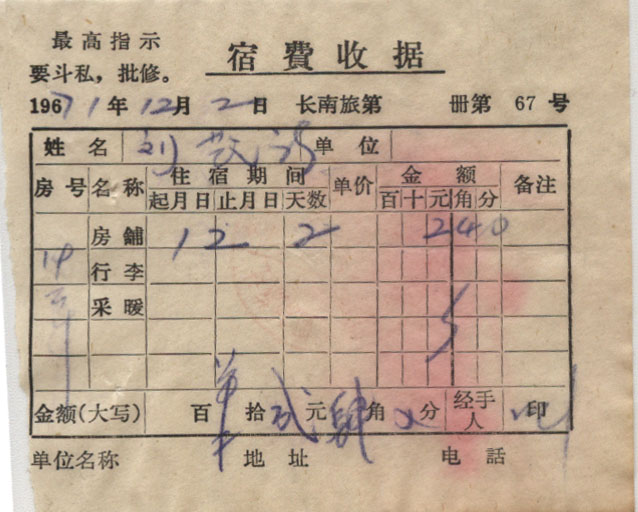 最高指示
要斗私，批修。
宿費收据
1971年12月2日 长南旅第 册第 67 号
姓名 刘 单位
房号 名称 住宿期间 单价 金额 备注
起月日 止月日 天数 百 十 元 角 分
房舖 12 2 2 4 0
行李
采暖
金额(大写) 百 拾 弍 元 肆 角 分 经手人 印
单位名称 地址 电話